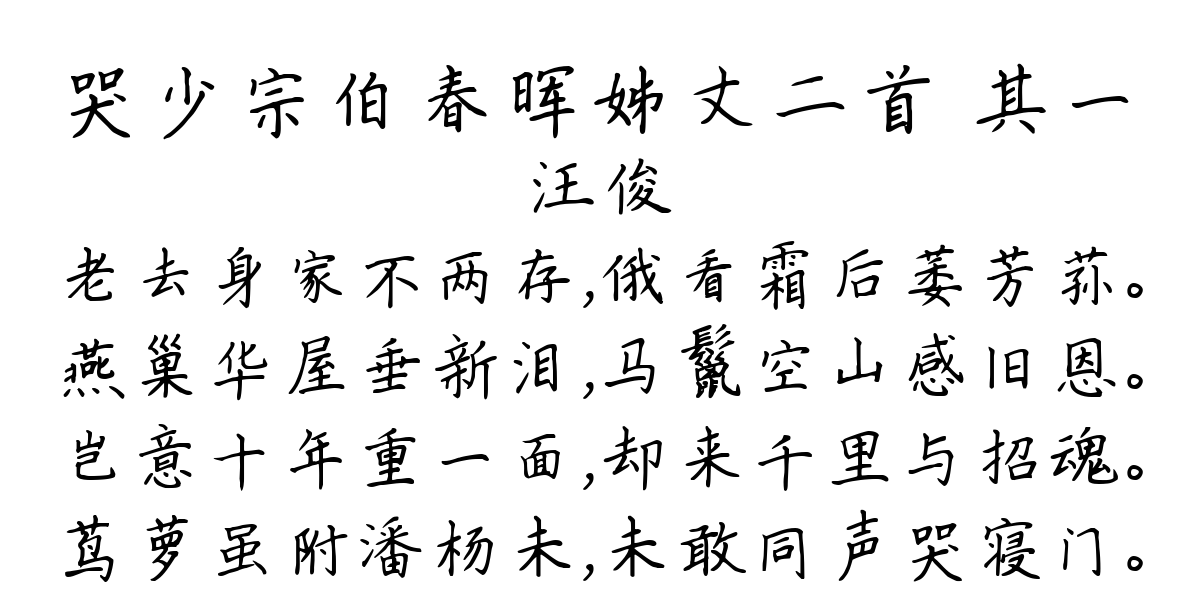 哭少宗伯春晖姊丈二首 其一
汪俊
老去身家不两存,俄看霜后萎芳荪。
燕巢华屋垂新泪,马鬣空山感旧恩。
岂意十年重一面,却来千里与招魂。
茑萝虽附潘杨未,未敢同声哭寝门。